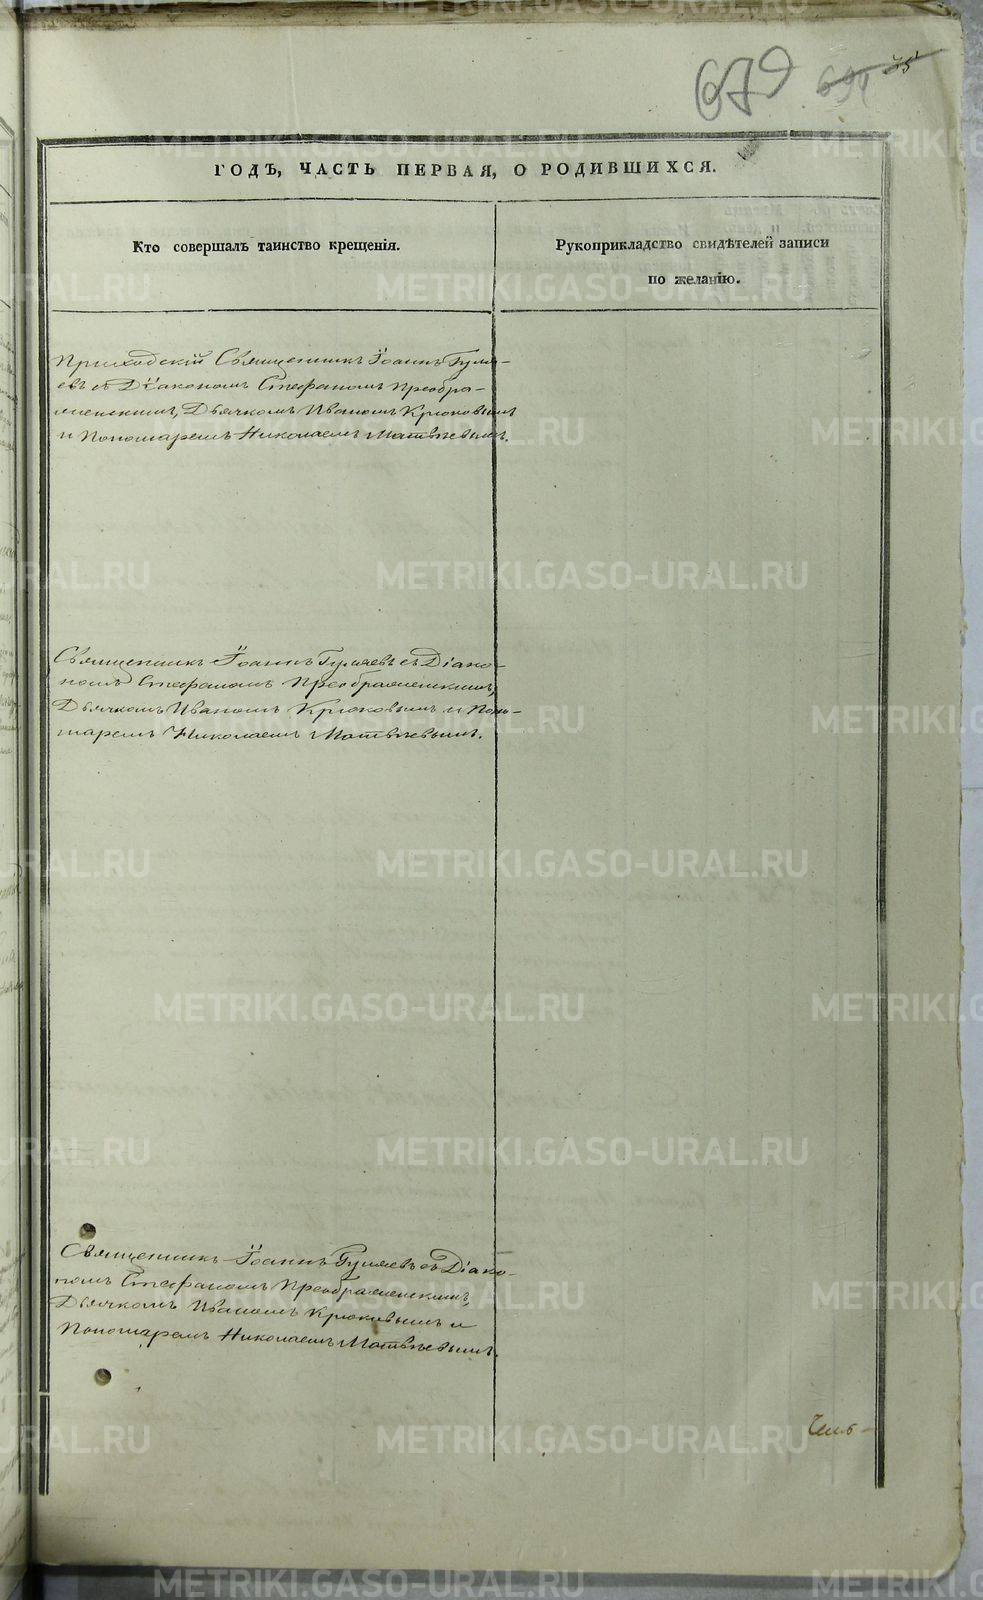 679
ГОДЪ, ЧАСТЬ ПЕРВАЯ, О РОДИВШИХСЯ.
Кто совершалъ таинство крещенія.
Рукоприкладство свидѣтелей записи
по желанію.
Приходскій Священникъ Іоаннъ Гуля-
евъ съ Діакономъ Стефаномъ Преобра-
женскимъ, Дьячкомъ Иваномъ Крюковымъ
и Пономаремъ Николаемъ Матвѣевымъ.
Священникъ Іоаннъ Гуляевъ съ Діако-
номъ Стефаномъ Преображенскимъ,
Дьячкомъ Иваномъ Крюковымъ и Поно-
маремъ Николаемъ Матвѣевымъ.
Священникъ Іоаннъ Гуляевъ съ Діако-
номъ Стефаномъ Преображенскимъ,
Дьячкомъ Иваномъ Крюковымъ и
Пономаремъ Николаемъ Матвѣевымъ.
METRIKI.GASO-URAL.RU